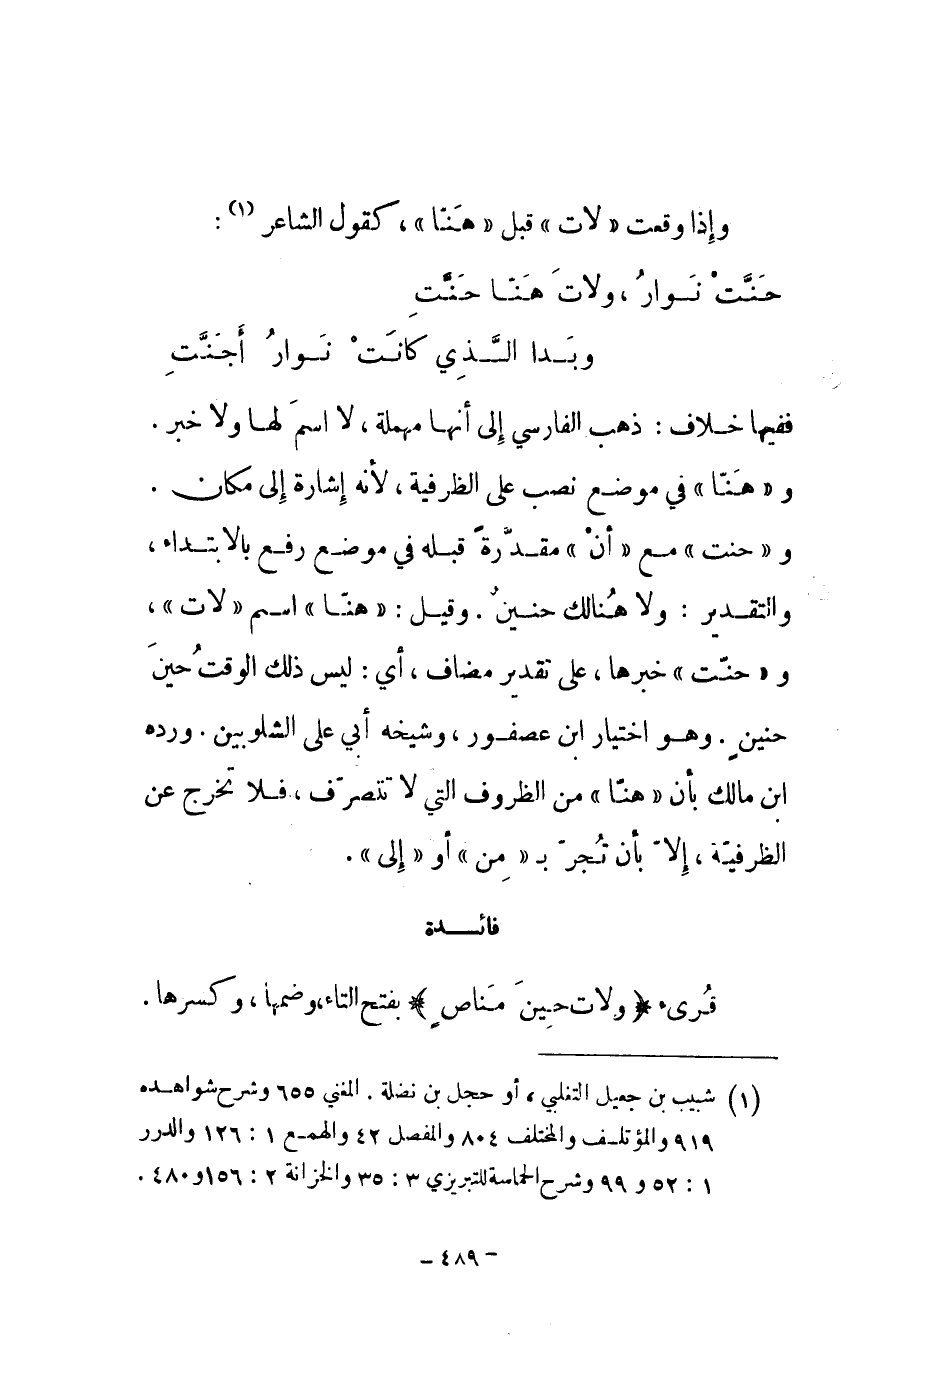 وإذا وقعت « لات » قبل « هَنّا » ، كقول الشاعر (١) :
حَنَّتْ نَوارُ ، ولاتَ هَنّا حَنَّتِ
وبَدا الَّذِي كانَتْ نَوارُ أَجَنَّتِ
ففيها خلاف : ذهب الفارسي إلى أنها مهملة ، لا اسمَ لها ولا خبر .
و « هَنّا » في موضع نصب على الظرفية ، لأنه إشارة إلى مكان .
و « حنت » مع « أنْ » مقدَّرةً قبله في موضع رفع بالابتداء ،
والتقدير : ولا هُنالك حنينٌ . وقيل : « هنّا » اسم « لات » ،
و « حنّت » خبرها ، على تقدير مضاف ، أي : ليس ذلك الوقتُ حينَ
حنينٍ . وهو اختيار ابن عصفور ، وشيخه أبي على الشلوبين . ورده
ابن مالك بأن « هنّا » من الظروف التي لا تتصرّف ، فلا تخرج عن
الظرفيّة ، إلاّ بأن تُجرّ بـ « مِن » أو « إلى » .
فائدة
قُرىء ﴿ ولات حِينَ مَناصٍ ﴾ بفتح التاء ، وضمها ، وكسرها .
(١) شبيب بن جعيل التغلبي ، أو حجل بن نضلة . المغني ٦٥٥ وشرح شواهده
٩١٩ والمؤتلف والمختلف ٨٠٤ والمفصل ٤٢ والهمع ١ : ١٢٦ والدرر
١ : ٥٢ و ٩٩ وشرح الحماسة للتبريزي ٣ : ٣٥ والخزانة ٢ : ١٥٦ و ٤٨٠ .
– ٤٨٩ –